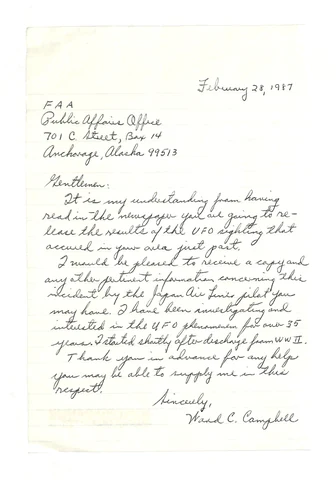 February 28, 1987
FAA
Public Affairs Office
701 C Street, Box 14
Anchorage, Alaska 99513
Gentlemen:
It is my understanding from having
read in the newspaper you are going to re-
lease the results of the UFO sighting that
accured in your area just past.
I would be pleased to receive a copy and
any other pertinent information concerning this
incident by the Japan Air Lines pilot you
may have. I have been investigating and
intersted in the UFO phenomenon for over 35
years. I started shortly after discharge from WW II.
Thank you in advance for any help
you may be able to supply me in this
respect.
Sincerely,
Ward C. Campbell